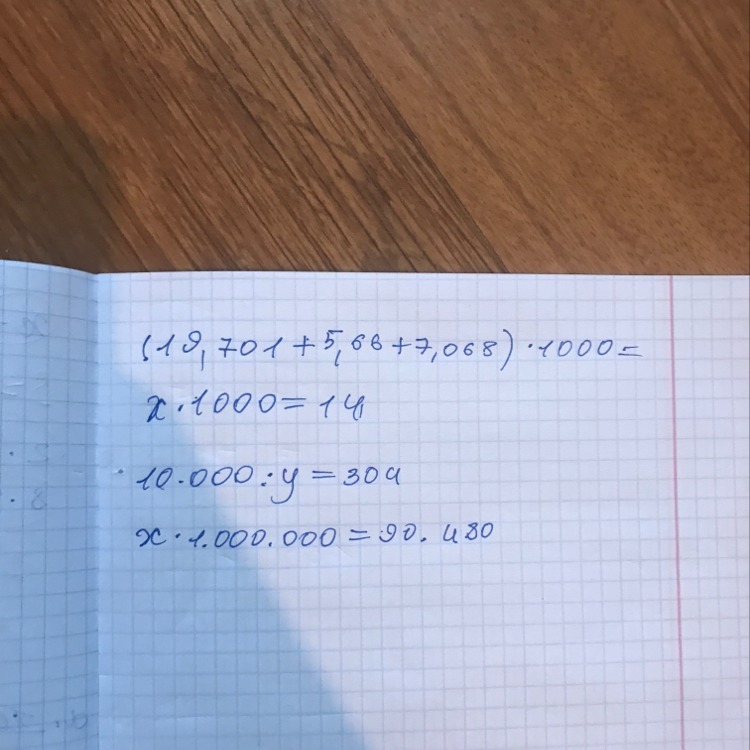 (19,701+5,66+7,068)·1000=
x·1000=14
10.000:y=304
x·1.000.000=90.480